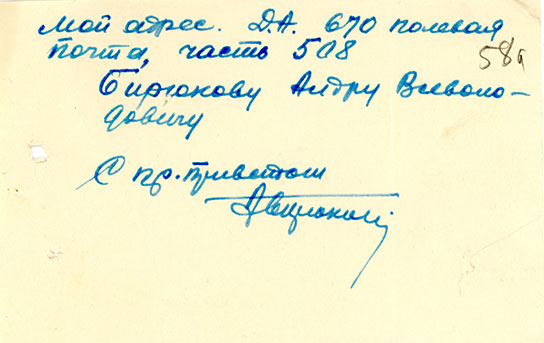 Мой адрес. Д.А. 670 полевая
почта, часть 508
58а
Бирюкову Алдру Всеволо-
довичу
С пр. приветом
АБирюков